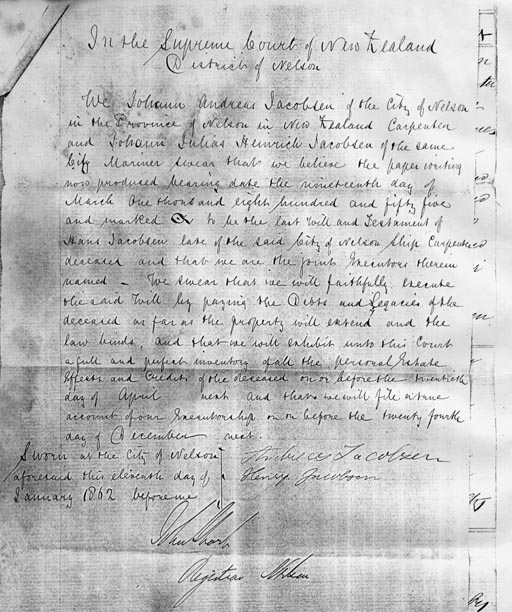 In the Supreme Court of New Zealand
District of Nelson
We Johann Andreas Jacobsen of the City of Nelson
in the Province of Nelson in New Zealand Carpenter
and Johann Julias Heinrich Jacobsen of the same
City Mariner swear that we believe the paper writing
now produced bearing date the nineteenth day of
March One thousand eight hundred and fifty five
and marked to be the last Will and Testament of
Hans Jacobsen late of the said City of Nelson Ship Carpenter
deceased and that we are the joint Executors therein
named – We swear that we will faithfully execute
the said Will by paying the Debts and Legacies of the
deceased as far as the property will extend and the
law binds, and that we will exhibit unto this Court
a full and perfect inventory of all the personal Estate
Effects and Credits of the deceased on or before the twentieth
day of April next and that we will file a true
account of our Executorship on or before the twenty fourth
day of December next.
Sworn at the City of Nelson
aforesaid this eleventh day of
January 1862 before me
Jacobsen
Henry Jacobsen
Registrar Nelson